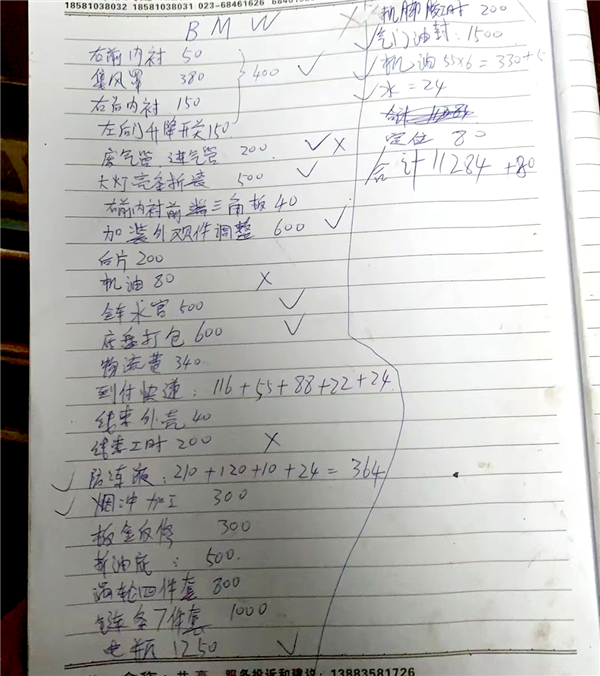 18581038032 18581031001 023-68461626
BMW
右前内衬 50
集风罩 380
400 ✓
右后内衬 150
左后门升降开关 150
废气管 进气管 200 ✓ ×
大灯壳拆装 500 ✓
右前内衬前端三角板 40
加装外观件调整 600 ✓
台片 200
机油 80 ×
全车水管 500 ✓
底盘打包 600 ✓
物流费 340
到付快递: 116+55+88+22+24
线束外壳 40
线束工时 200 ×
✓ 防冻液: 210+120+10+24=364
✓ 烟冲加工 300
板金返修 300
拆油底: 500
涡轮四件套 800
链条7件套 1000
电瓶 1250 ✓
× 机脚胶工时 200
✓ 气门油封: 1500
✓ 机油 55×6=330
✓ 水=24
合计
定位 80
合计 11284 +80
服务投诉和建议: 13883581726